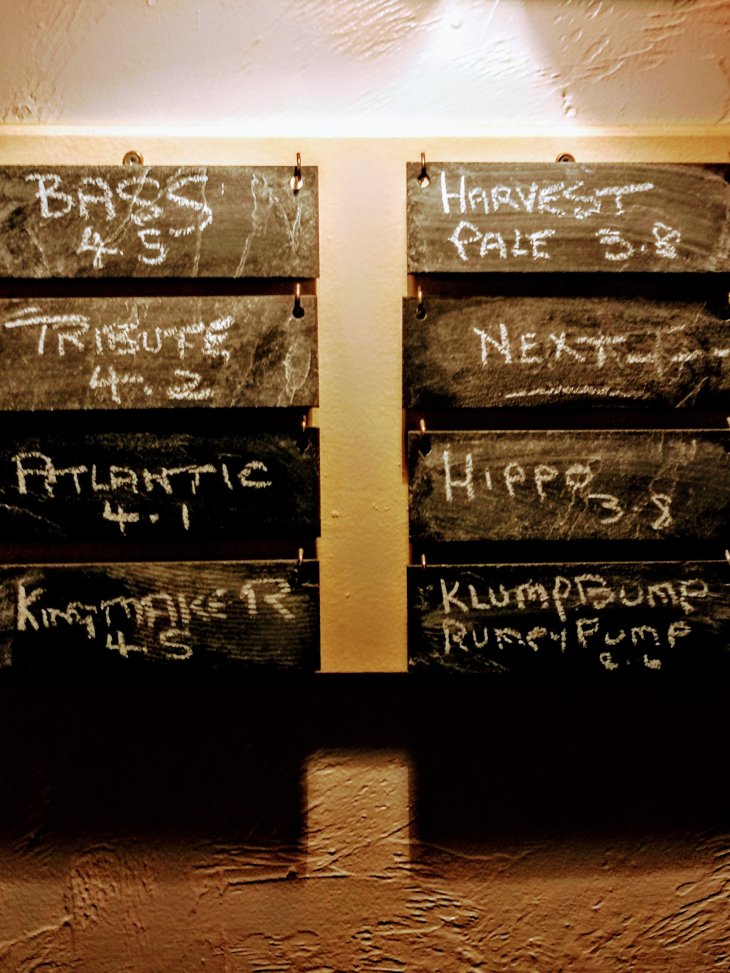 BASS
4.5
TRIBUTE
4.2
ATLANTIC
4.1
KINGMAKER
4.5
HARVEST
PALE 3.8
NEXT
HIPPO
3.8
KLUMPBUMP
PUMP